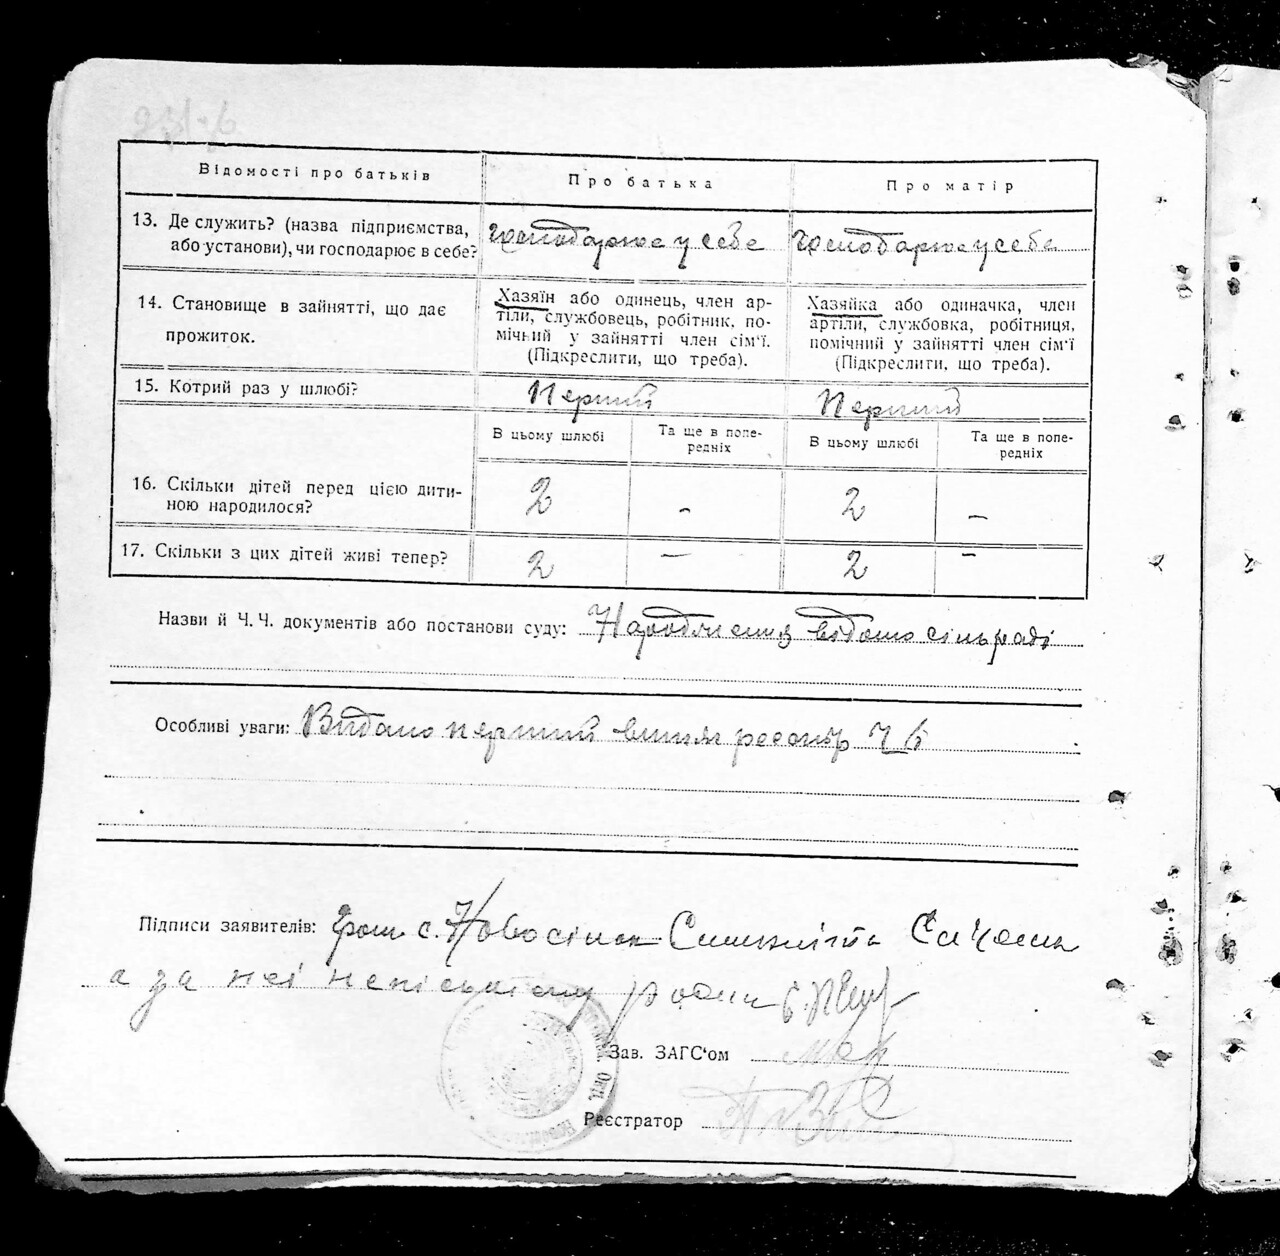 Відомості про батьків
Про батька
Про матір
13. Де служить? (назва підприємства,
або установи), чи господарює в себе?
господарює у себе
господарює у себе
14. Становище в зайнятті, що дає
прожиток.
Хазяїн або одинець, член ар-
тіли, службовець, робітник, по-
мічний у зайнятті член сім'ї.
(Підкреслити, що треба).
Хазяйка або одиначка, член
артіли, службовка, робітниця,
помічний у зайнятті член сім'ї
(Підкреслити, що треба).
15. Котрий раз у шлюбі?
Перший
Перший
В цьому шлюбі
Та ще в попе-
редніх
В цьому шлюбі
Та ще в попе-
редніх
16. Скільки дітей перед цією дити-
ною народилося?
2
-
2
-
17. Скільки з цих дітей живі тепер?
2
-
2
-
Назви й Ч. Ч. документів або постанови суду: Народження відомо сільраді
Особливі уваги: Видано перший
Підписи заявителів: с. Новосілок
а за неї
Зав. ЗАГС'ом
Реєстратор